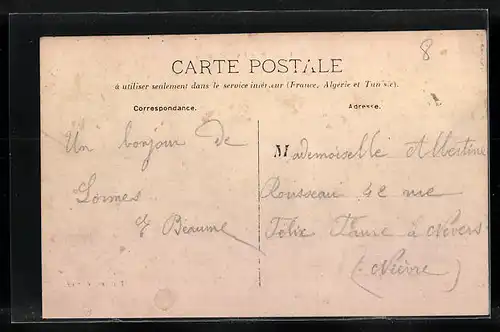 8
CARTE POSTALE
à utiliser seulement dans le service intérieur (France, Algérie et Tunisie).
Correspondance.
Adresse.
Un bonjour de
Lormes
E Beaume
Mademoiselle Albertine
Rousseau 42 rue
Félix Faure à Nevers
(Nièvre)